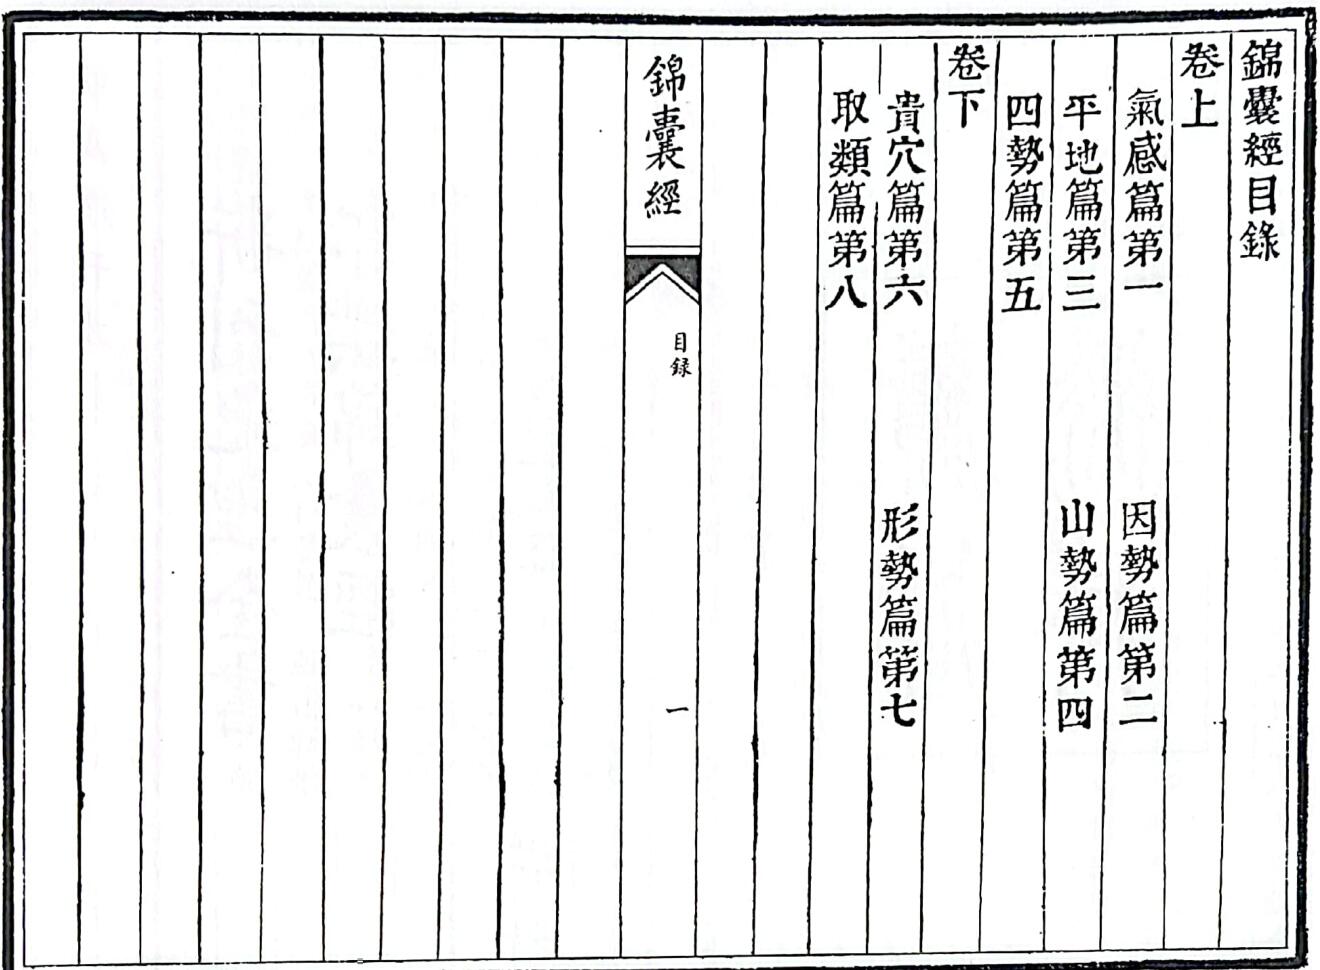 錦囊經目錄
卷上
氣感篇第一　因勢篇第二
平地篇第三　山勢篇第四
四勢篇第五
卷下
貴穴篇第六　形勢篇第七
取類篇第八
錦囊經　目録　一